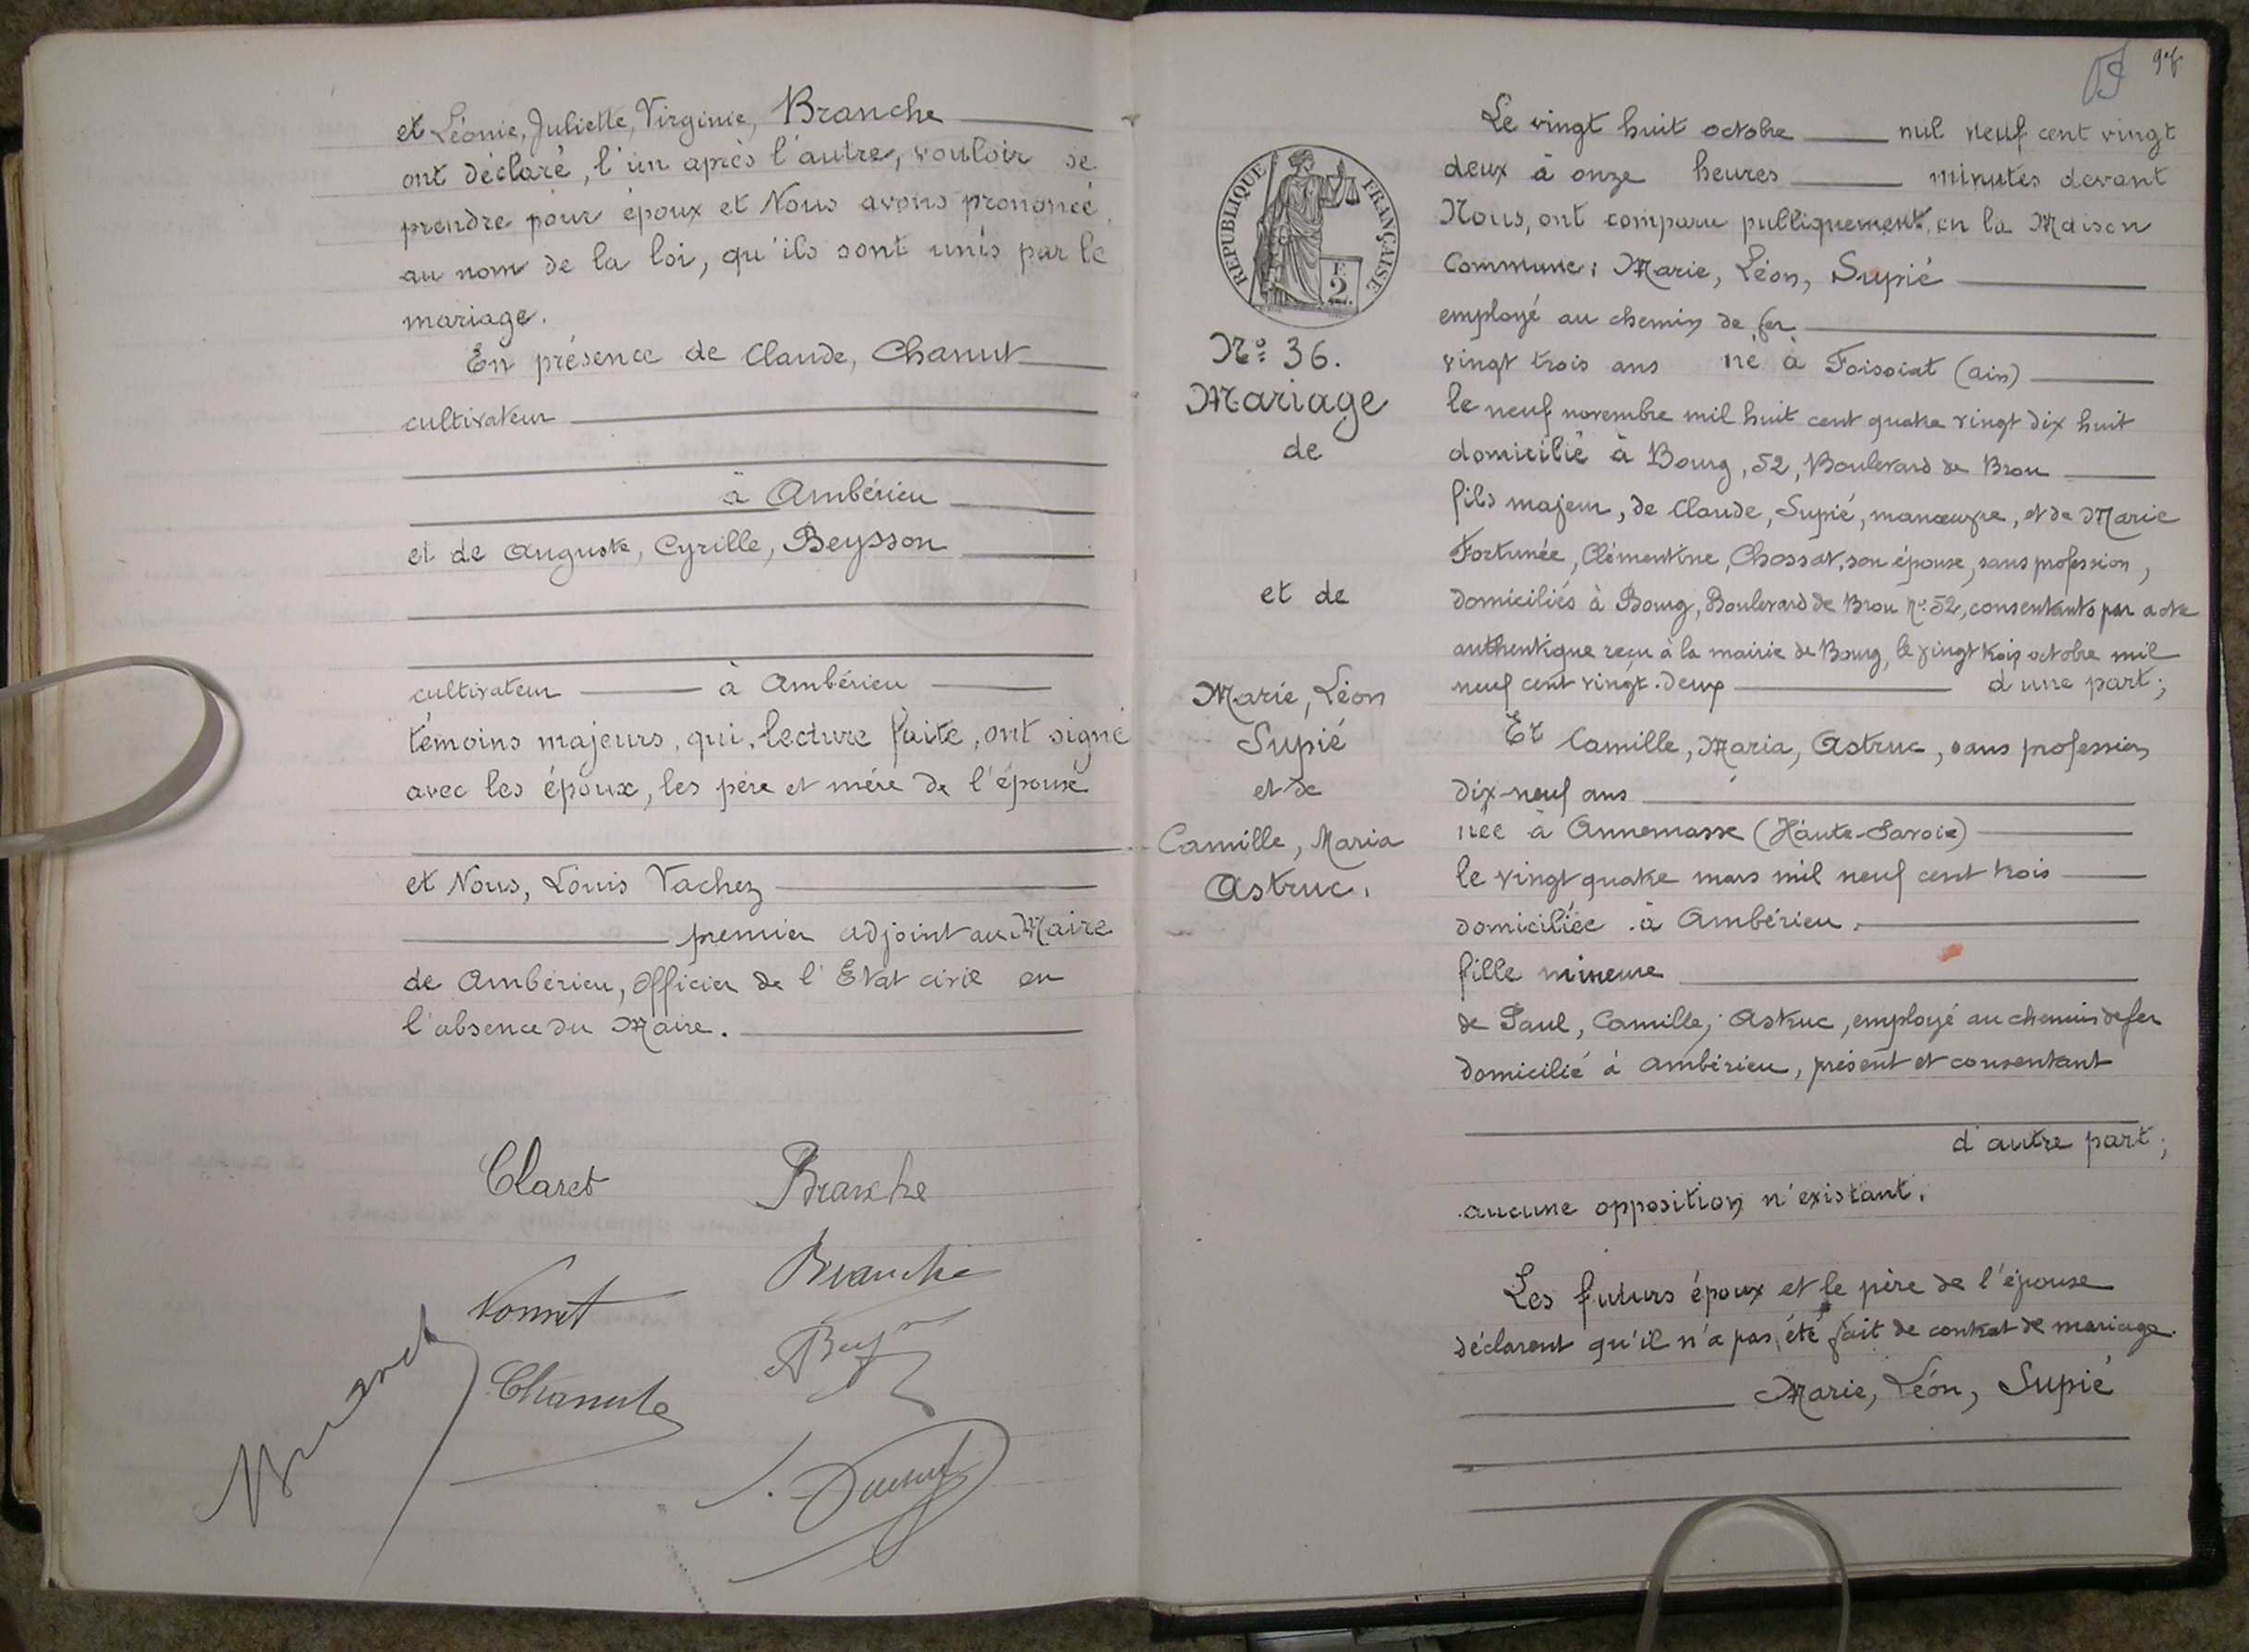 et Léonie, Juliette, Virginie, Branche
ont déclaré, l'un après l'autre, vouloir se
prendre pour époux et Nous avons prononcé
au nom de la loi, qu'ils sont unis par le
mariage.
En présence de Claude, Chanut
cultivateur
à Ambérieu
et de Auguste, Cyrille, Beysson
cultivateur à Ambérieu
témoins majeurs, qui, lecture faite, ont signé
avec les époux, les père et mère de l'épouse
et Nous, Louis Vachez
premier adjoint au Maire
de Ambérieu, Officier de l'Etat civil en
l'absence du Maire.
Claret Branche
Branche
Vonnet
Chanut
REPUBLIQUE FRANÇAISE
2
No: 36.
Mariage
de
et de
Marie, Léon
Supié
et de
Camille, Maria
Astruc.
Le vingt huit octobre mil neuf cent vingt
deux à onze heures minutes devant
Nous, ont comparu publiquement en la Maison
Commune: Marie, Léon, Supié
employé au chemin de fer
vingt trois ans né à Foissiat (ain)
le neuf novembre mil huit cent quatre vingt dix huit
domicilié à Bourg, 52, Boulevard de Brou
fils majeur, de Claude, Supié, manœuvre, et de Marie
Fortunée, Clémentine, Chossat, son épouse, sans profession,
domiciliés à Bourg, Boulevard de Brou No: 52, consentants par acte
authentique reçu à la mairie de Bourg, le vingt trois octobre mil
neuf cent vingt-deux d'une part;
Et Camille, Maria, Astruc, sans profession
dix-neuf ans
née à Annemasse (Haute-Savoie)
le vingt quatre mars mil neuf cent trois
domiciliée à Ambérieu.
fille mineure
de Paul, Camille, Astruc, employé au chemin de fer
domicilié à Ambérieu, présent et consentant
d'autre part;
aucune opposition n'existant.
Les futurs époux et le père de l'épouse
déclarent qu'il n'a pas été fait de contrat de mariage.
Marie, Léon, Supié